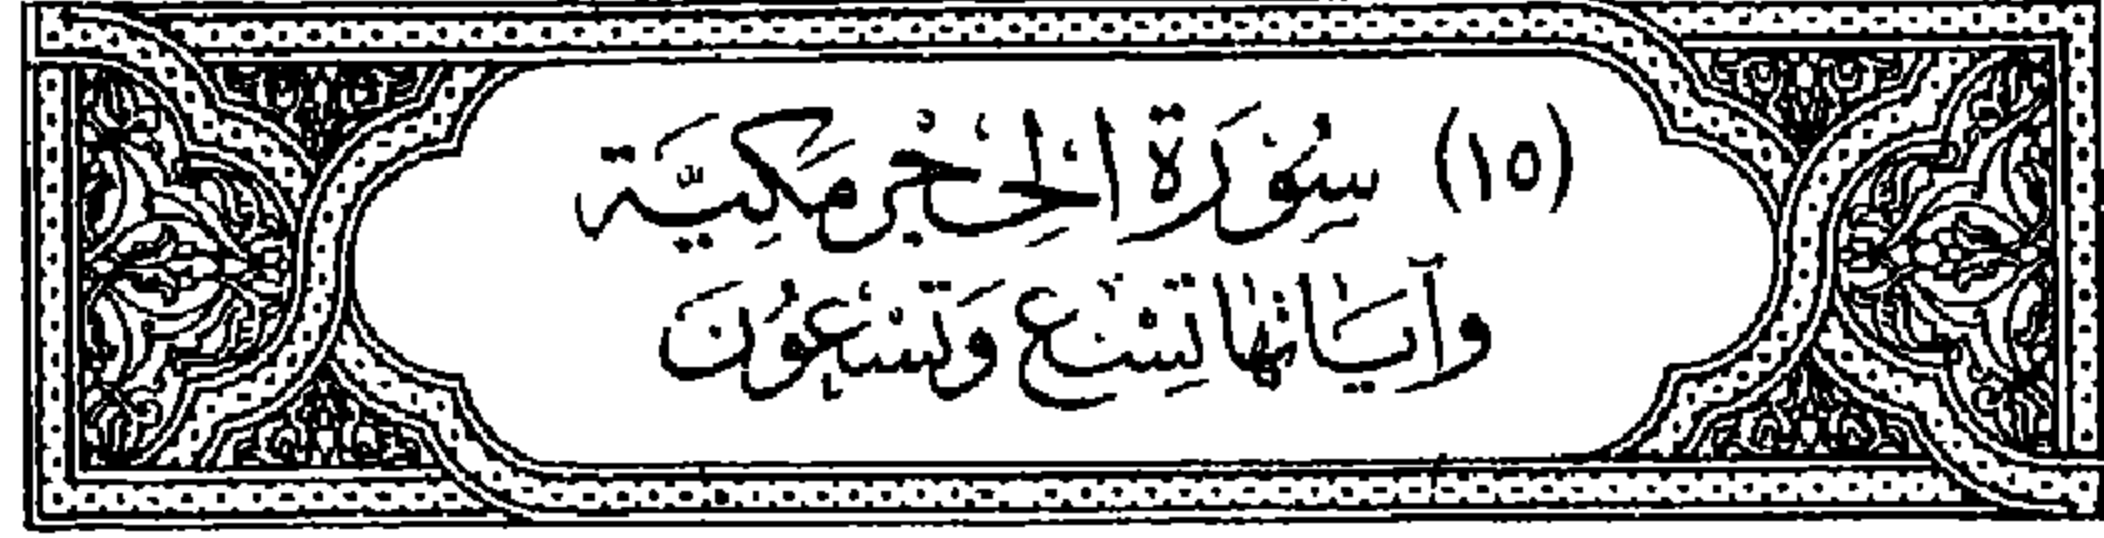 (١٥) سُوْرَة الحِجْر مَكِيَّة
وآيَاتهَا تِسْع وَتسْعُونَ